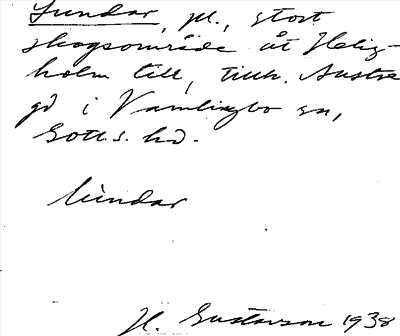 Lundar, pl., stort
skogsområde åt Helig-
holm till, tillh. Austre
gd i Vamlingbo sn,
Gotl. s. hd.
lùndar
H. Gustavson 1938